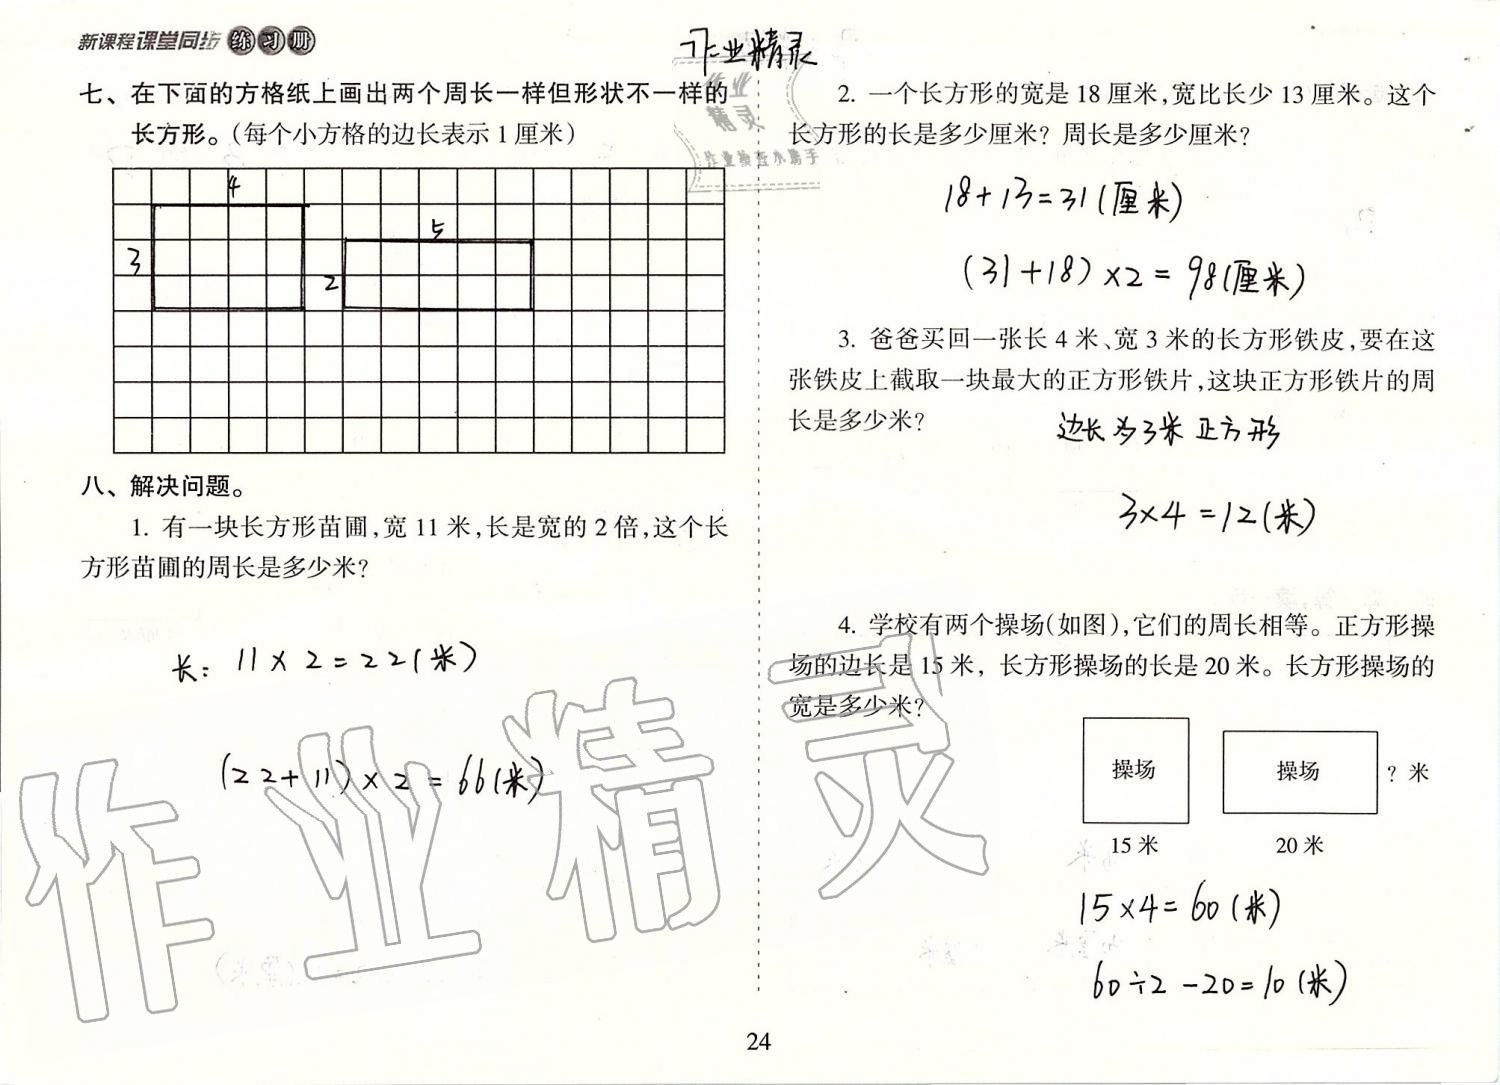 新课程课堂同步练习册
作业精灵
七、在下面的方格纸上画出两个周长一样但形状不一样的
长方形。(每个小方格的边长表示1厘米)
4
3
5
2
八、解决问题。
1. 有一块长方形苗圃,宽11米,长是宽的2倍,这个长
方形苗圃的周长是多少米?
长: 11×2=22(米)
(22+11)×2=66(米)
作业
精灵
作业检查小助手
2. 一个长方形的宽是18厘米,宽比长少13厘米。这个
长方形的长是多少厘米? 周长是多少厘米?
18+13=31(厘米)
(31+18)×2=98(厘米)
3. 爸爸买回一张长4米、宽3米的长方形铁皮,要在这
张铁皮上截取一块最大的正方形铁片,这块正方形铁片的周
长是多少米?
边长为3米正方形
3×4=12(米)
4. 学校有两个操场(如图),它们的周长相等。正方形操
场的边长是15米, 长方形操场的长是20米。长方形操场的
宽是多少米?
操场
操场
? 米
15米
20米
15×4=60(米)
60÷2-20=10(米)
作业精灵
24